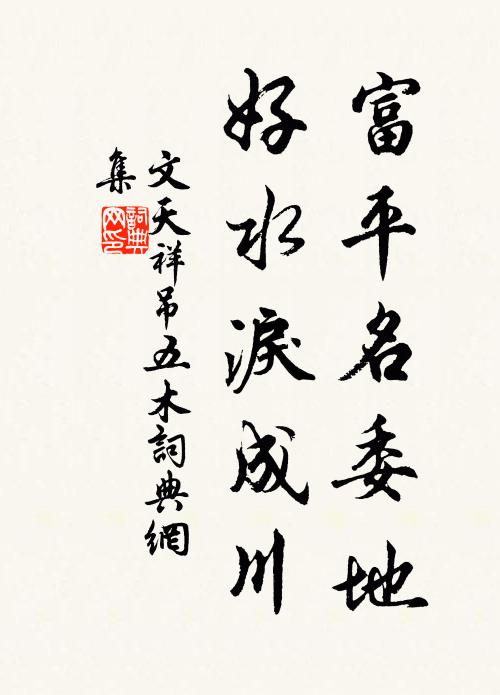 富平名委地
好水淚成川
文天祥吊五木詞典網
集
詞典网印